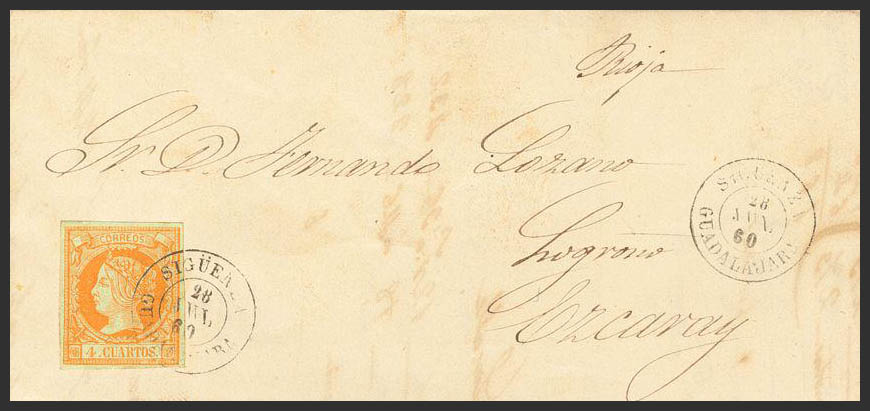 Rioja
Sr. D. Fernando Lozano
Logroño
Ezcaray
CORREOS
4 CUARTOS.
SIGÜENZA
28
JUL
60
GUADALAJARA
SIGÜENZA
28
JUL
60
GUADALAJARA